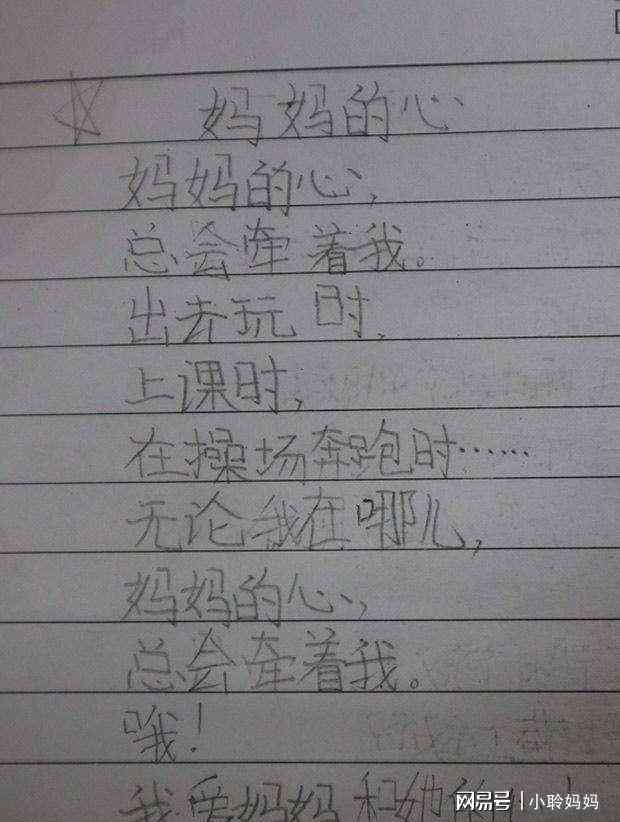 妈妈的心
妈妈的心,
总会牵着我。
出去玩时,
上课时,
在操场奔跑时……
无论我在哪儿,
妈妈的心,
总会牵着我。
哦!
我爱妈妈和她的
网易号 | 小聆妈妈